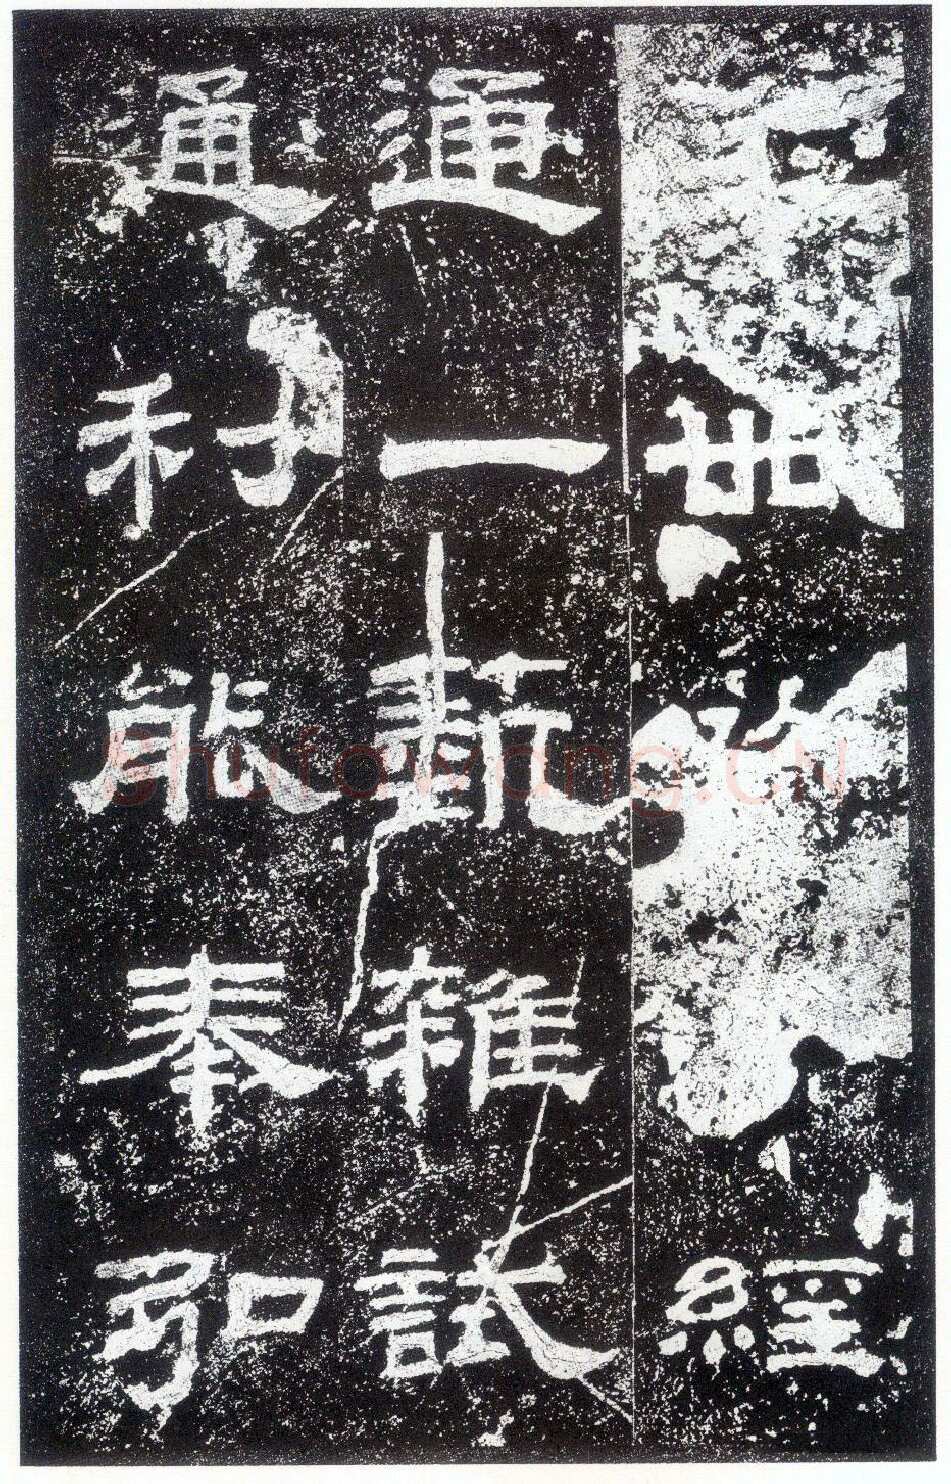 卌經
通一埶雜試
通利能奉弘
Shufawang.CN